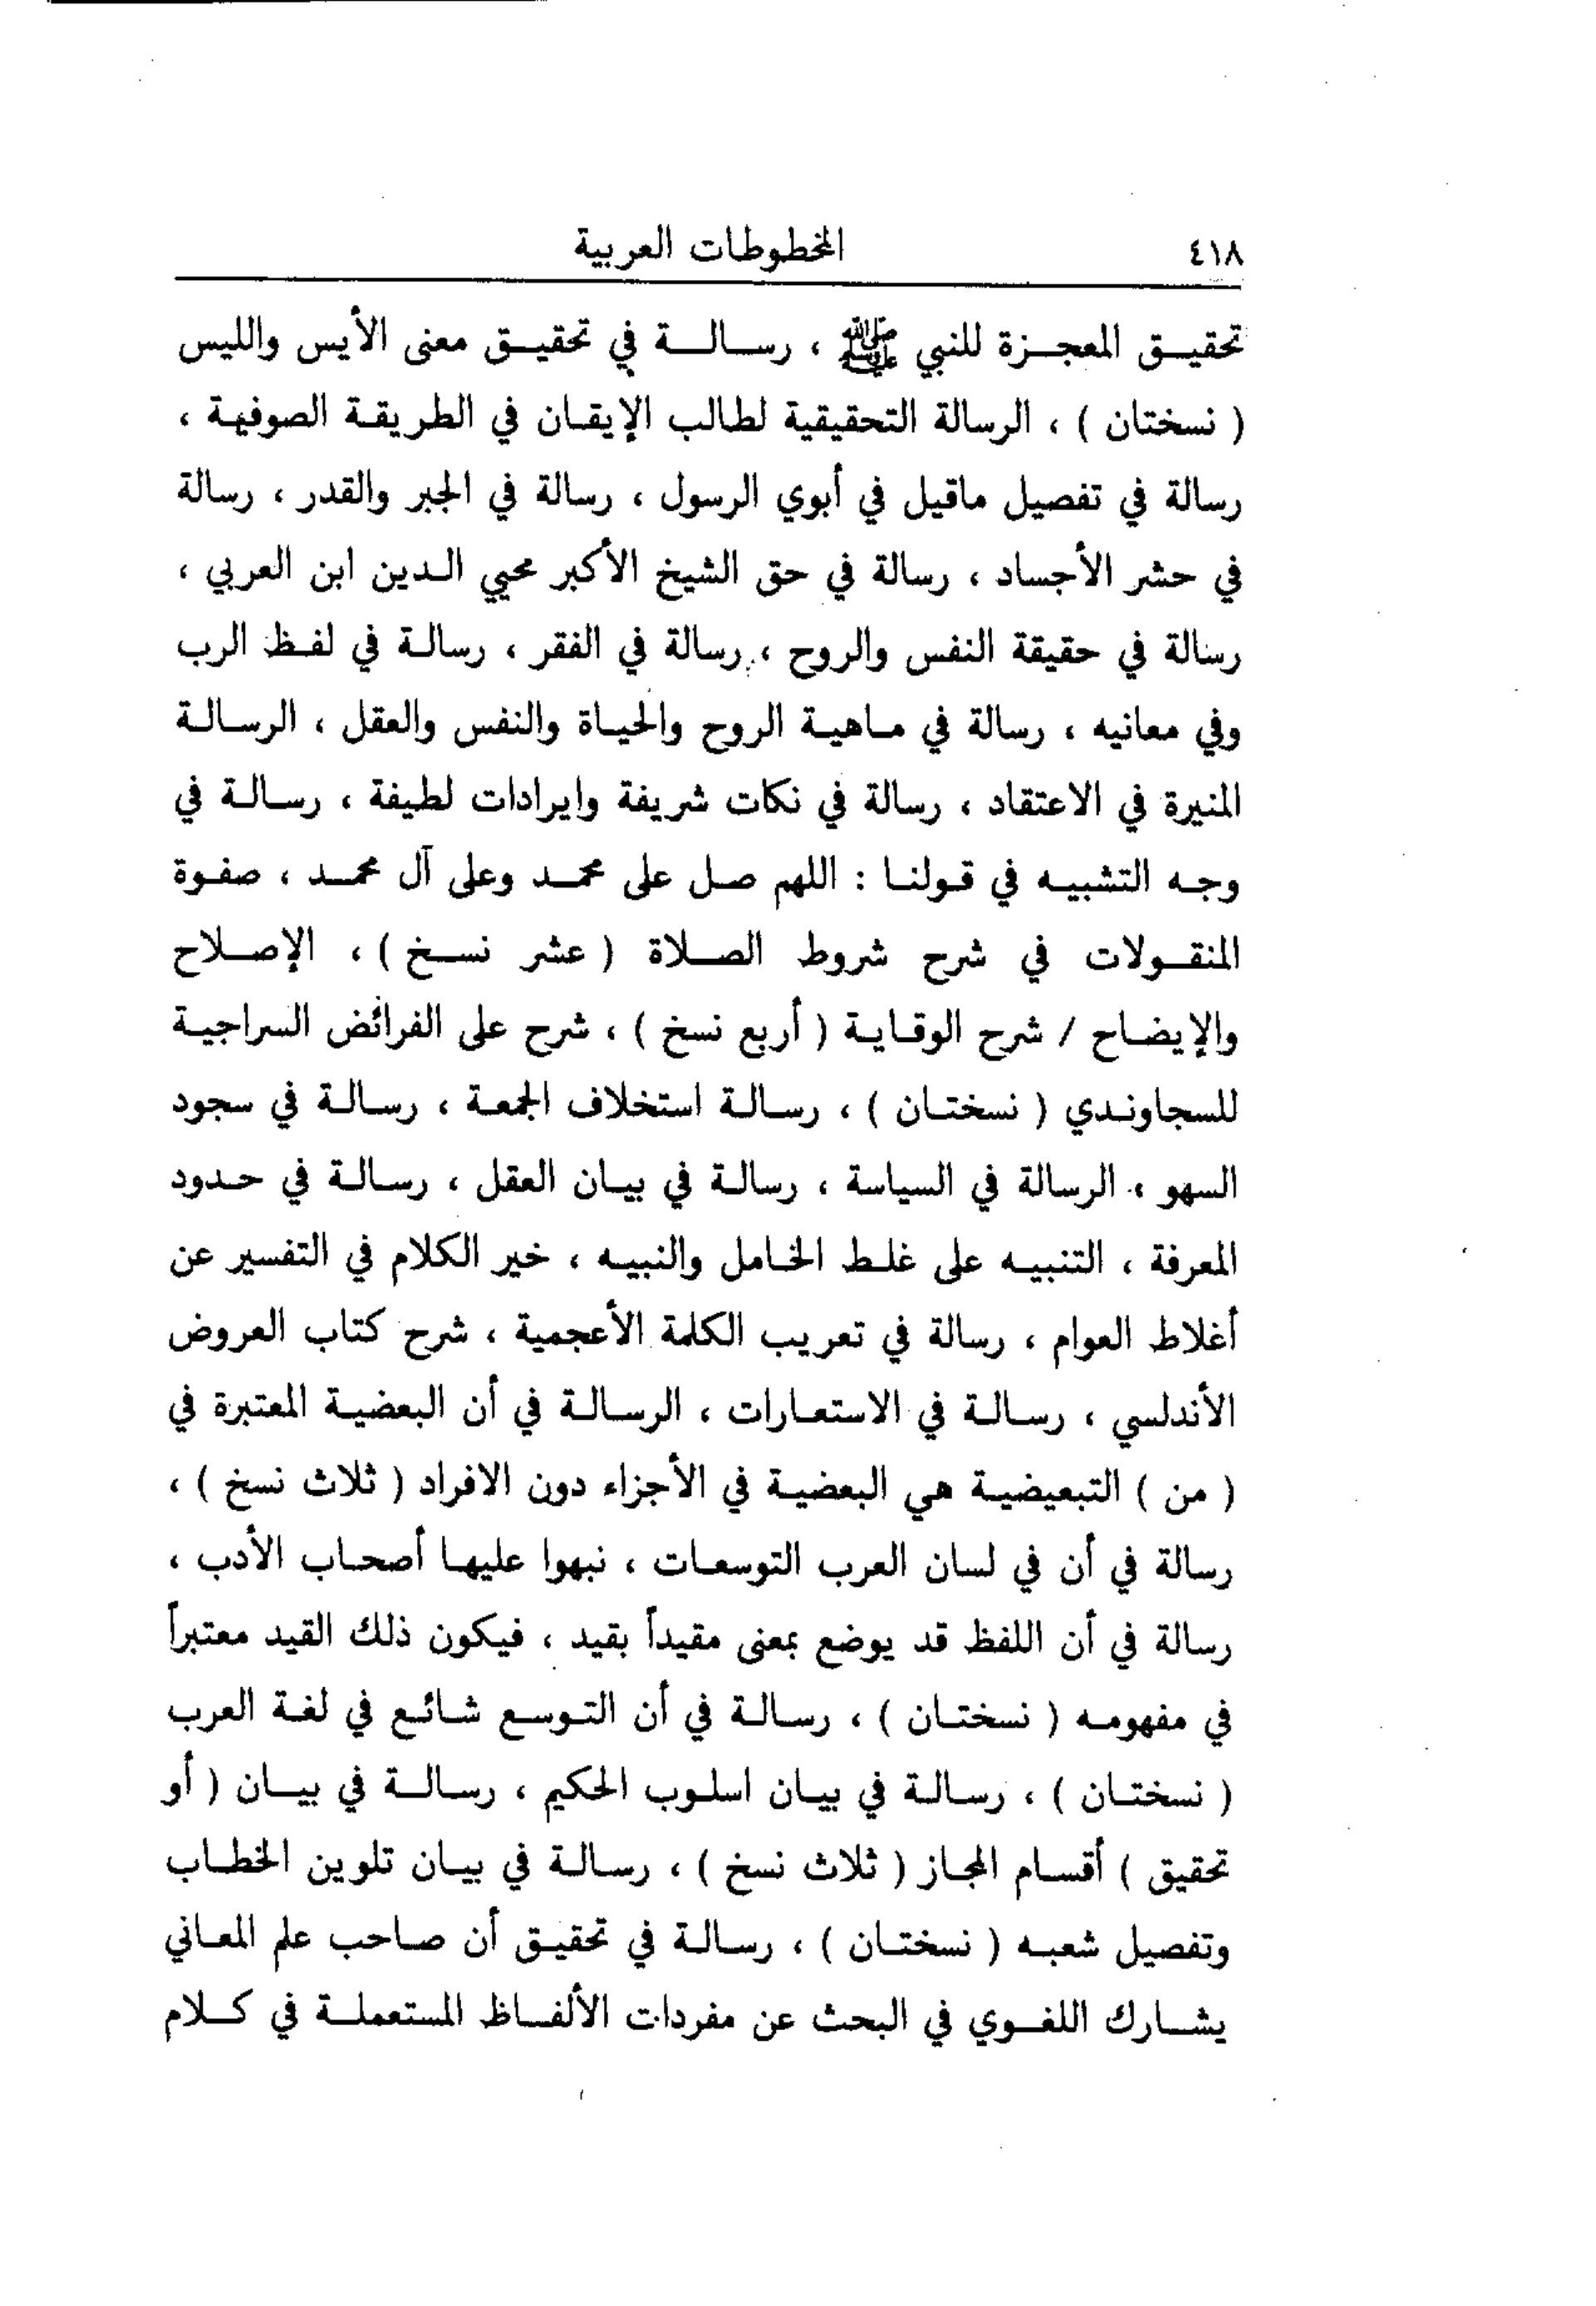 ٤١٨ المخطوطات العربية
تحقيق المعجزة للنبي ﷺ ، رسالة في تحقيق معنى الأيس والليس
( نسختان ) ، الرسالة التحقيقية لطالب الإيقان في الطريقة الصوفية ،
رسالة في تفصيل ماقيل في أبوي الرسول ، رسالة في الجبر والقدر ، رسالة
في حشر الأجساد ، رسالة في حق الشيخ الأكبر محيي الدين ابن العربي ،
رسالة في حقيقة النفس والروح ، رسالة في الفقر ، رسالة في لفظ الرب
وفي معانيه ، رسالة في ماهية الروح والحياة والنفس والعقل ، الرسالة
المنيرة في الاعتقاد ، رسالة في نكات شريفة وايرادات لطيفة ، رسالة في
وجه التشبيه في قولنا : اللهم صل على محمد وعلى آل محمد ، صفوة
المنقولات في شرح شروط الصلاة ( عشر نسخ ) ، الإصلاح
والإيضاح / شرح الوقاية ( أربع نسخ ) ، شرح على الفرائض السراجية
للسجاوندي ( نسختان ) ، رسالة استخلاف الجمعة ، رسالة في سجود
السهو ، الرسالة في السياسة ، رسالة في بيان العقل ، رسالة في حدود
المعرفة ، التنبيه على غلط الخامل والنبيه ، خير الكلام في التفسير عن
أغلاط العوام ، رسالة في تعريب الكلمة الأعجمية ، شرح كتاب العروض
الأندلسي ، رسالة في الاستعارات ، الرسالة في أن البعضية المعتبرة في
( من ) التبعيضية هي البعضية في الأجزاء دون الافراد ( ثلاث نسخ ) ،
رسالة في أن في لسان العرب التوسعات ، نبهوا عليها أصحاب الأدب ،
رسالة في أن اللفظ قد يوضع بمعنى مقيداً بقيد ، فيكون ذلك القيد معتبراً
في مفهومه ( نسختان ) ، رسالة في أن التوسع شائع في لغة العرب
( نسختان ) ، رسالة في بيان اسلوب الحكيم ، رسالة في بيان ( أو
تحقيق ) أقسام المجاز ( ثلاث نسخ ) ، رسالة في بيان تلوين الخطاب
وتفصيل شعبه ( نسختان ) ، رسالة في تحقيق أن صاحب علم المعاني
يشارك اللغوي في البحث عن مفردات الألفاظ المستعملة في كلام